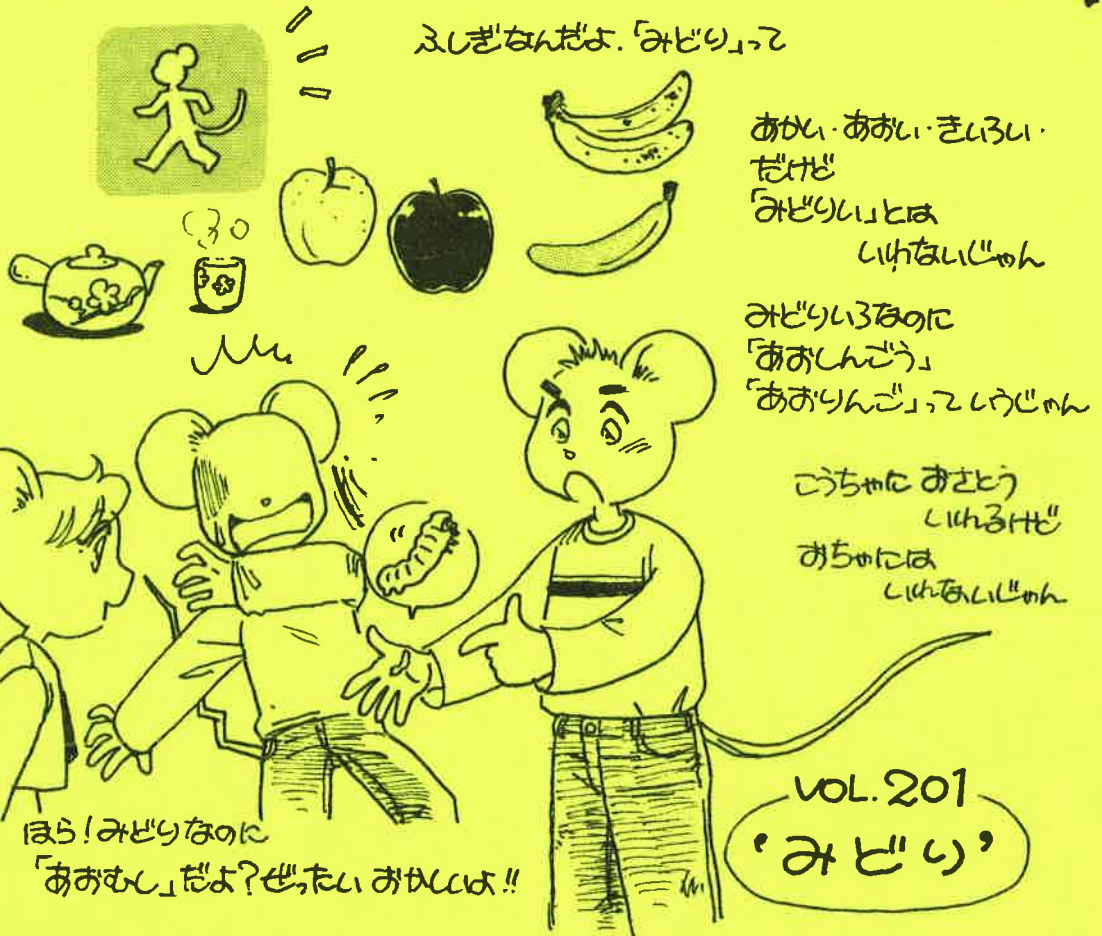 ふしぎなんだよ.「みどり」って
あかい・あおい・きいろい・
だけど
「みどりい」とは
いわないじゃん
みどりいろなのに
「あおしんごう」
「あおりんご」っていうじゃん
こうちゃに おさとう
いれるけど
おちゃには
いれないじゃん
ほら!みどりなのに
「あおむし」だよ?ぜったい おかしいよ!!
VOL.201
'みどり'